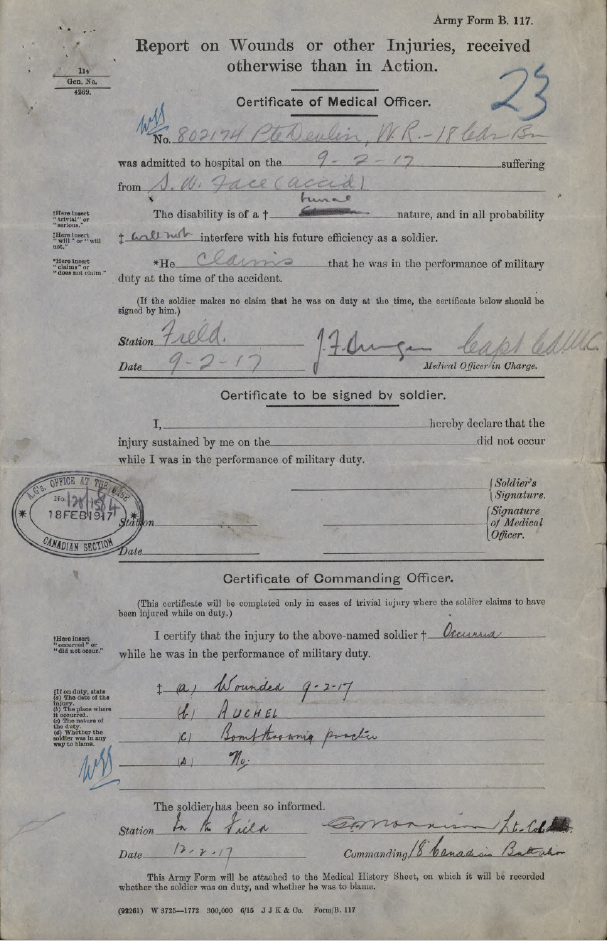 Army Form B. 117.
Report on Wounds or other Injuries, received
otherwise than in Action.
114
Gen. No.
4269.
23
Certificate of Medical Officer.
No. 802174 Pte Devlin, W.R. - 18 Cdn Bn
was admitted to hospital on the 9-2-17 suffering
from S.W. Face (accid)
†Here insert "trivial" or "serious."
The disability is of a † nature, and in all probability
‡Here insert "will" or "will not."
‡ will not interfere with his future efficiency as a soldier.
*Here insert "claims" or "does not claim."
*He claims that he was in the performance of military
duty at the time of the accident.
(If the soldier makes no claim that he was on duty at the time, the certificate below should be
signed by him.)
Station Field.
Date 9-2-17
Capt CAMC
Medical Officer in Charge.
Certificate to be signed by soldier.
I, hereby declare that the
injury sustained by me on the did not occur
while I was in the performance of military duty.
Soldier's Signature.
A.G's. OFFICE AT THE BASE
No.
18 FEB 1917
CANADIAN SECTION
Station
Signature of Medical Officer.
Date
Certificate of Commanding Officer.
(This certificate will be completed only in cases of trivial injury where the soldier claims to have
been injured while on duty.)
†Here insert "occurred" or "did not occur."
I certify that the injury to the above-named soldier † Occurred
while he was in the performance of military duty.
‡If on duty, state
(a) The date of the injury.
(b) The place where it occurred.
(c) The nature of the duty.
(d) Whether the soldier was in any way to blame.
‡ (a) Wounded 9-2-17
(b) AUCHEL
(c) Bomb throwing practice
(d) No.
The soldier has been so informed.
Station In the Field
Morrison Lt. Col
Date 12-2-17 Commanding 18 Canadian Battalion
This Army Form will be attached to the Medical History Sheet, on which it will be recorded
whether the soldier was on duty, and whether he was to blame.
(92261) W 3725—1772 300,000 6/15 J J K & Co. Form/B. 117